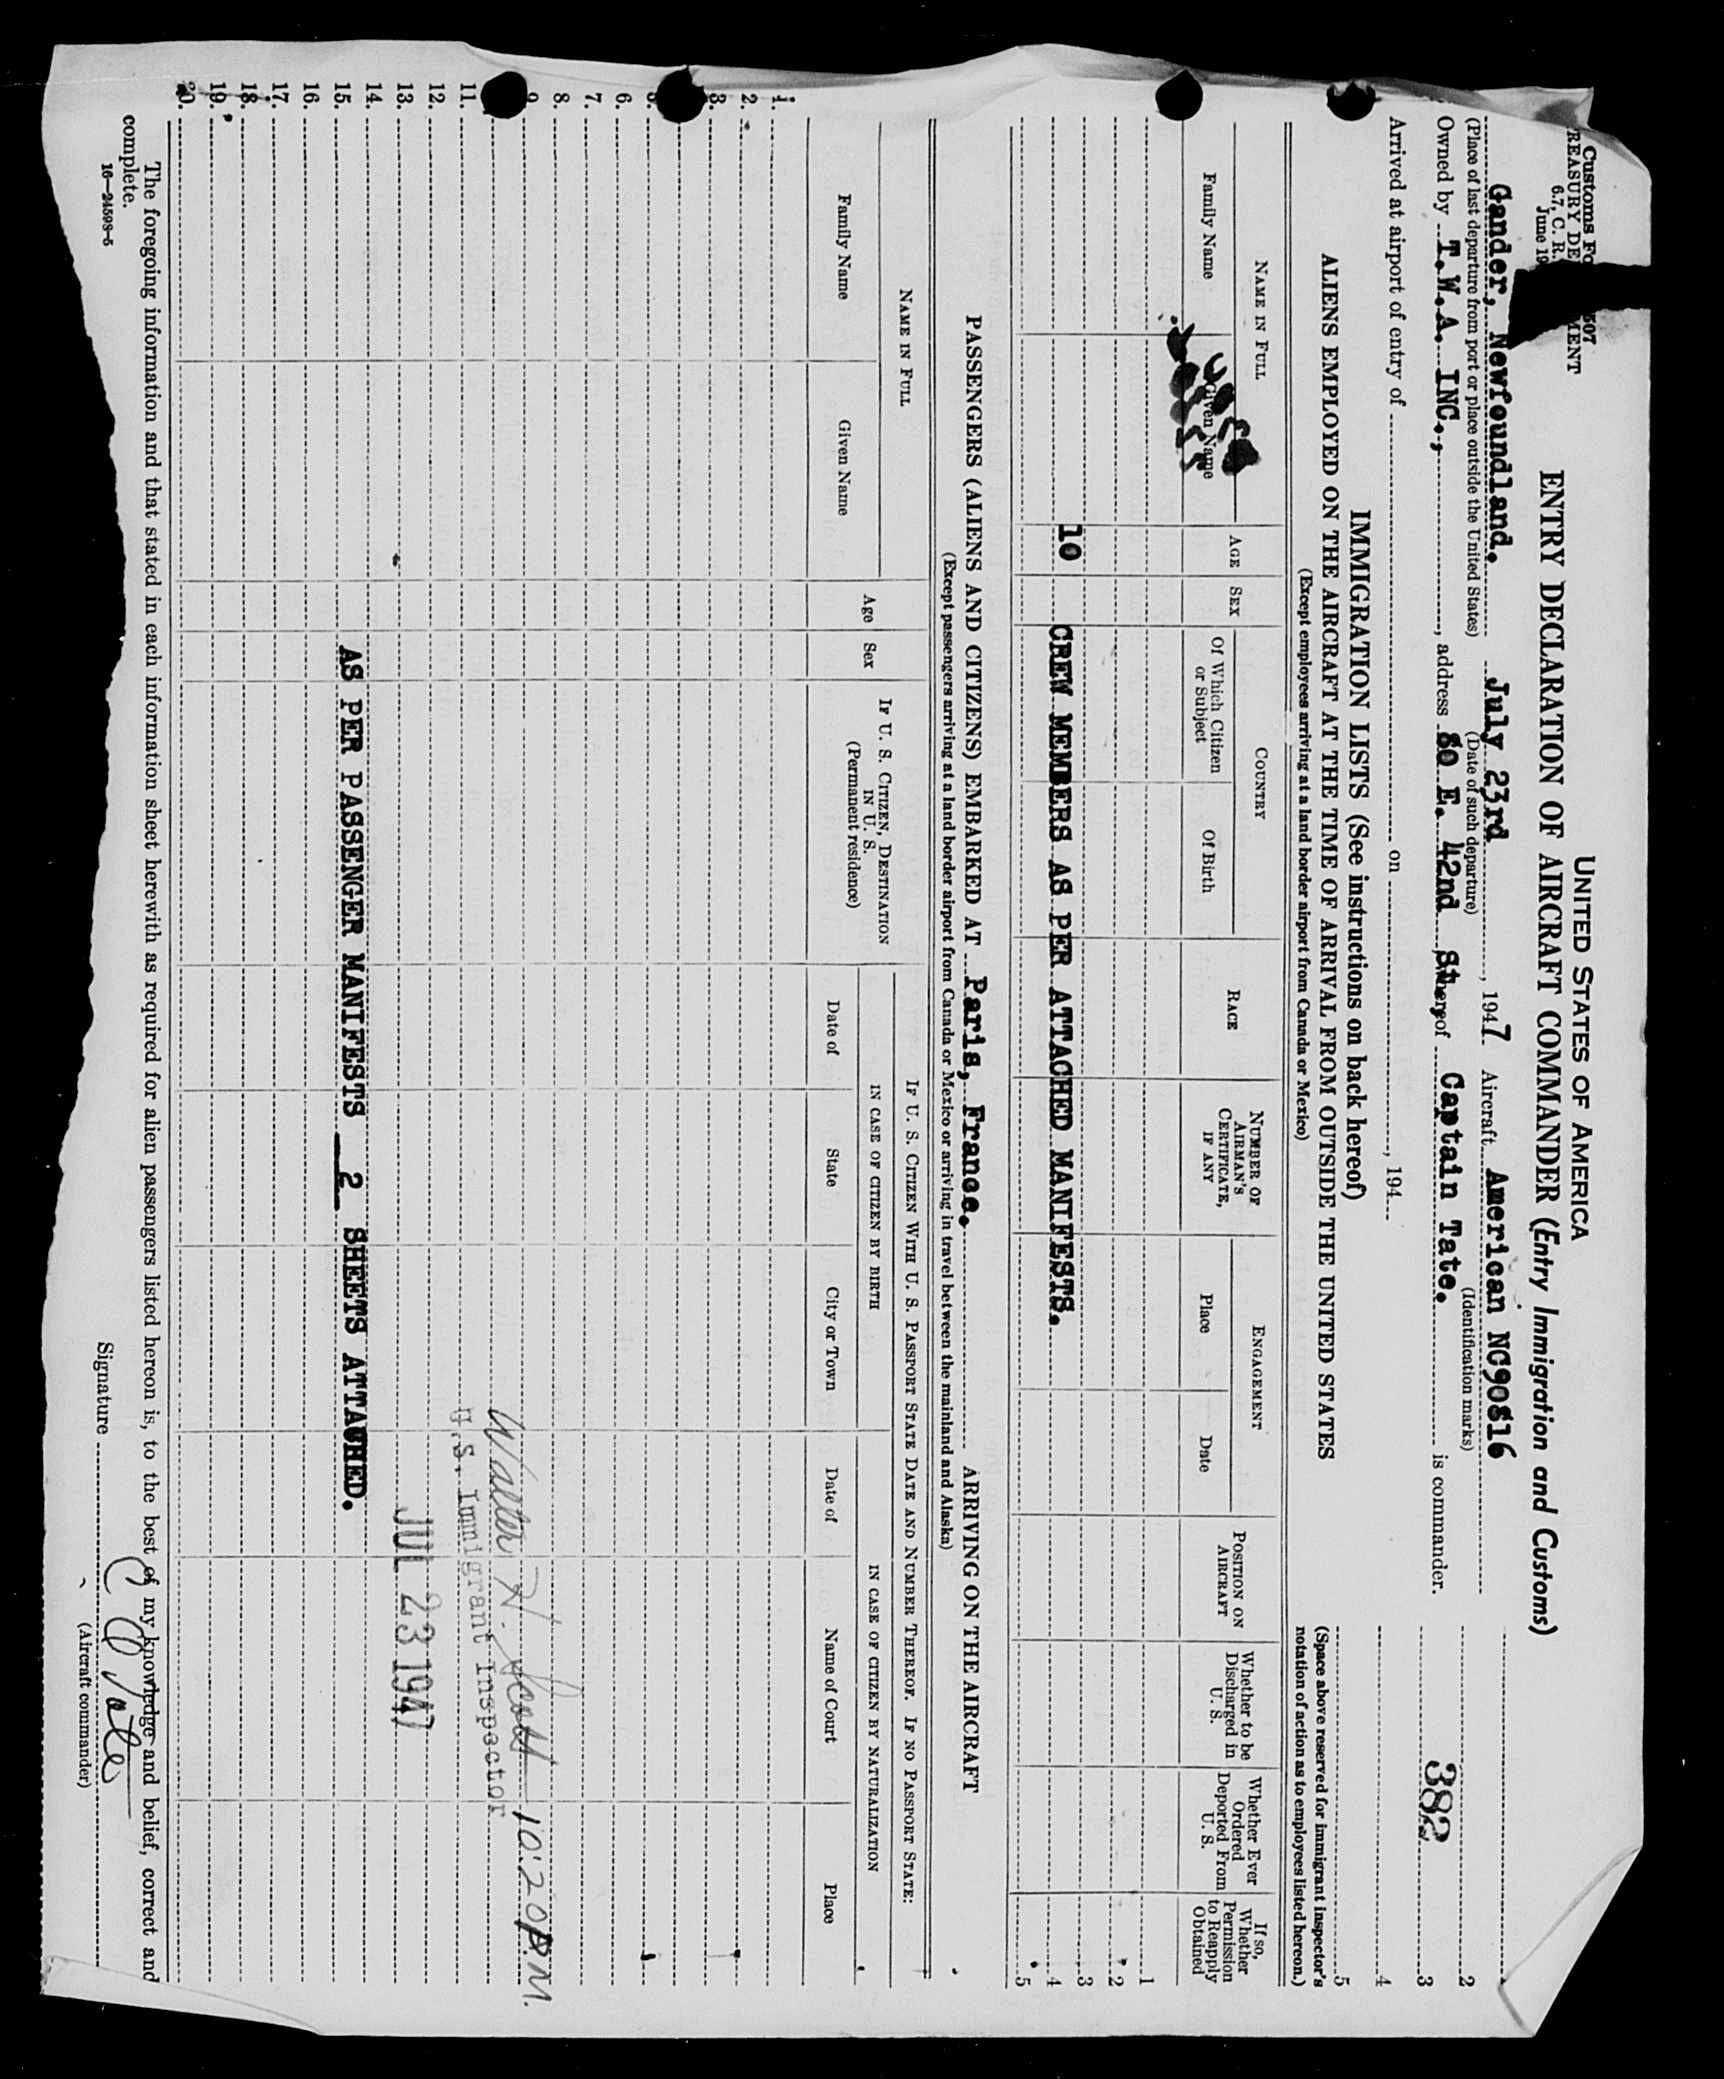 Customs Fo 507
TREASURY DE MENT
6.7, C. R.
June 19
UNITED STATES OF AMERICA
ENTRY DECLARATION OF AIRCRAFT COMMANDER (Entry Immigration and Customs)
Gander, Newfoundland. July 23rd, 1947 Aircraft American NC90816
(Place of last departure from port or place outside the United States) (Date of such departure) (Identification marks)
Owned by T.W.A. INC., , address 80 E. 42nd St., thereof Captain Tate. is commander.
Arrived at airport of entry of on , 194
382
2
3
4
5
(Space above reserved for immigrant inspector's
notation of action as to employees listed hereon.)
IMMIGRATION LISTS (See instructions on back hereof)
ALIENS EMPLOYED ON THE AIRCRAFT AT THE TIME OF ARRIVAL FROM OUTSIDE THE UNITED STATES
(Except employees arriving at a land border airport from Canada or Mexico)
NAME IN FULL
Family Name
Given Name
AGE
SEX
COUNTRY
Of Which Citizen
or Subject
Of Birth
RACE
NUMBER OF
AIRMAN'S
CERTIFICATE,
IF ANY
ENGAGEMENT
Place
Date
POSITION ON
AIRCRAFT
Whether to be
Discharged in
U. S.
Whether Ever
Ordered
Deported From
U. S.
If so,
Whether
Permission
to Reapply
Obtained
1
2
3
10 CREW MEMBERS AS PER ATTACHED MANIFESTS. 4
5
PASSENGERS (ALIENS AND CITIZENS) EMBARKED AT Paris, France. ARRIVING ON THE AIRCRAFT
(Except passengers arriving at a land border airport from Canada or Mexico or arriving in travel between the mainland and Alaska)
NAME IN FULL
Family Name
Given Name
Age
Sex
IF U. S. CITIZEN, DESTINATION
IN U. S.
(Permanent residence)
IF U. S. CITIZEN WITH U. S. PASSPORT STATE DATE AND NUMBER THEREOF. IF NO PASSPORT STATE:
IN CASE OF CITIZEN BY BIRTH
Date of
State
City or Town
IN CASE OF CITIZEN BY NATURALIZATION
Date of
Name of Court
Place
1.
2.
3.
5.
6.
7.
8.
9.
Walter H. Scott 10:20 P.M.
11.
U.S. Immigrant Inspector
12.
13.
JUL 23 1947
14.
15. AS PER PASSENGER MANIFESTS 2 SHEETS ATTACHED.
16.
17.
18.
19.
20.
The foregoing information and that stated in each information sheet herewith as required for alien passengers listed hereon is, to the best of my knowledge and belief, correct and
complete.
16—24598-5
Signature Tate
(Aircraft commander)